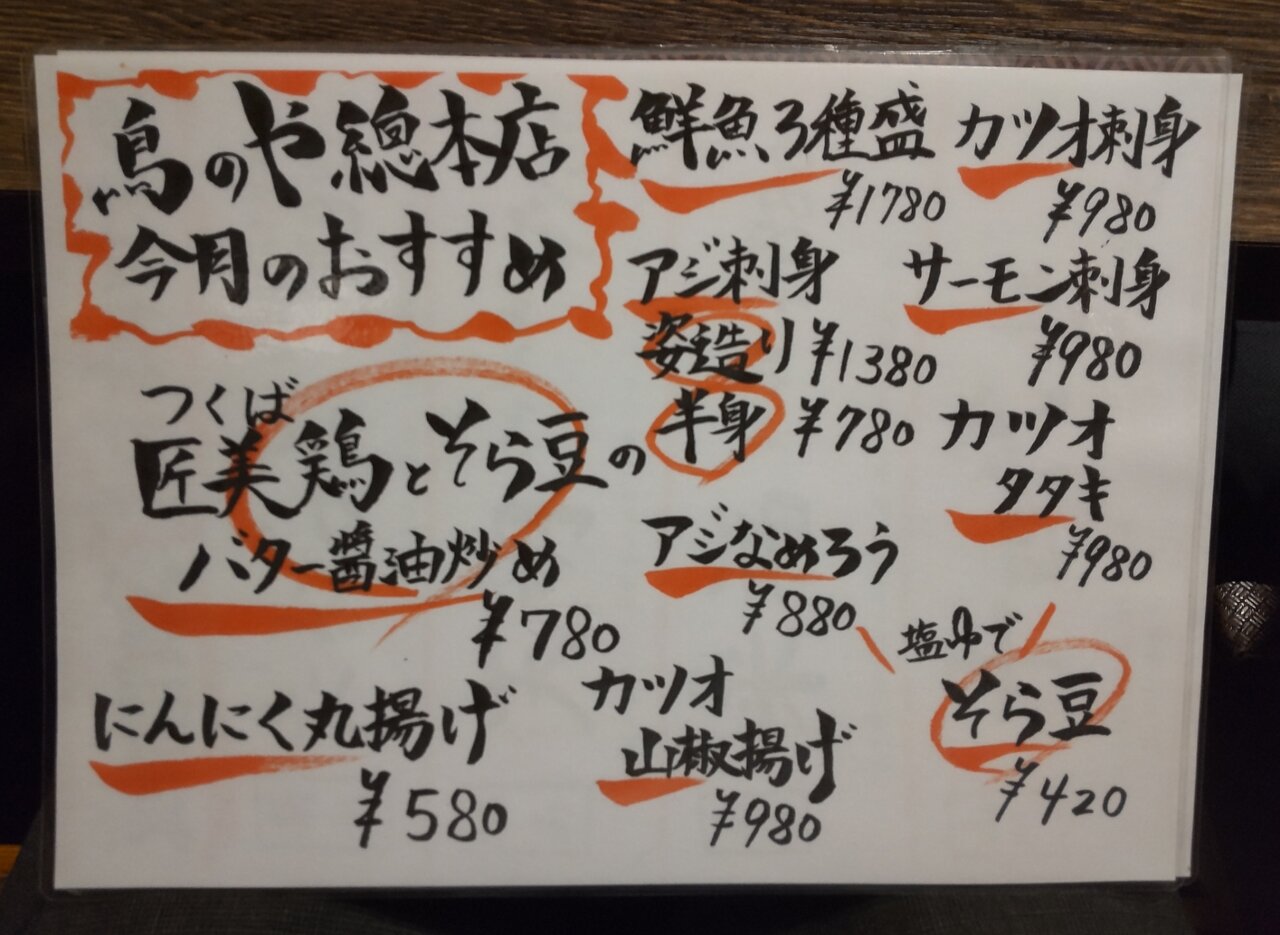 鳥のや総本店
今月のおすすめ
つくば
匠美鶏とそら豆の
バター醬油炒め
¥780
にんにく丸揚げ
¥580
鮮魚3種盛
¥1780
アジ刺身
姿造り ¥1380
半身 ¥780
アジなめろう
¥880
カツオ
山椒揚げ
¥980
カツオ刺身
¥980
サーモン刺身
¥980
カツオ
タタキ
¥980
塩ゆで
そら豆
¥420